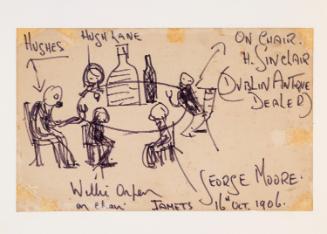 HUGHES
HUGH LANE
ON CHAIR.
H. SINCLAIR
(DUBLIN ANTIQUE
DEALER)
Willie Orpen
on chair
JAMETS
GEORGE MOORE.
16th OCT. 1906.